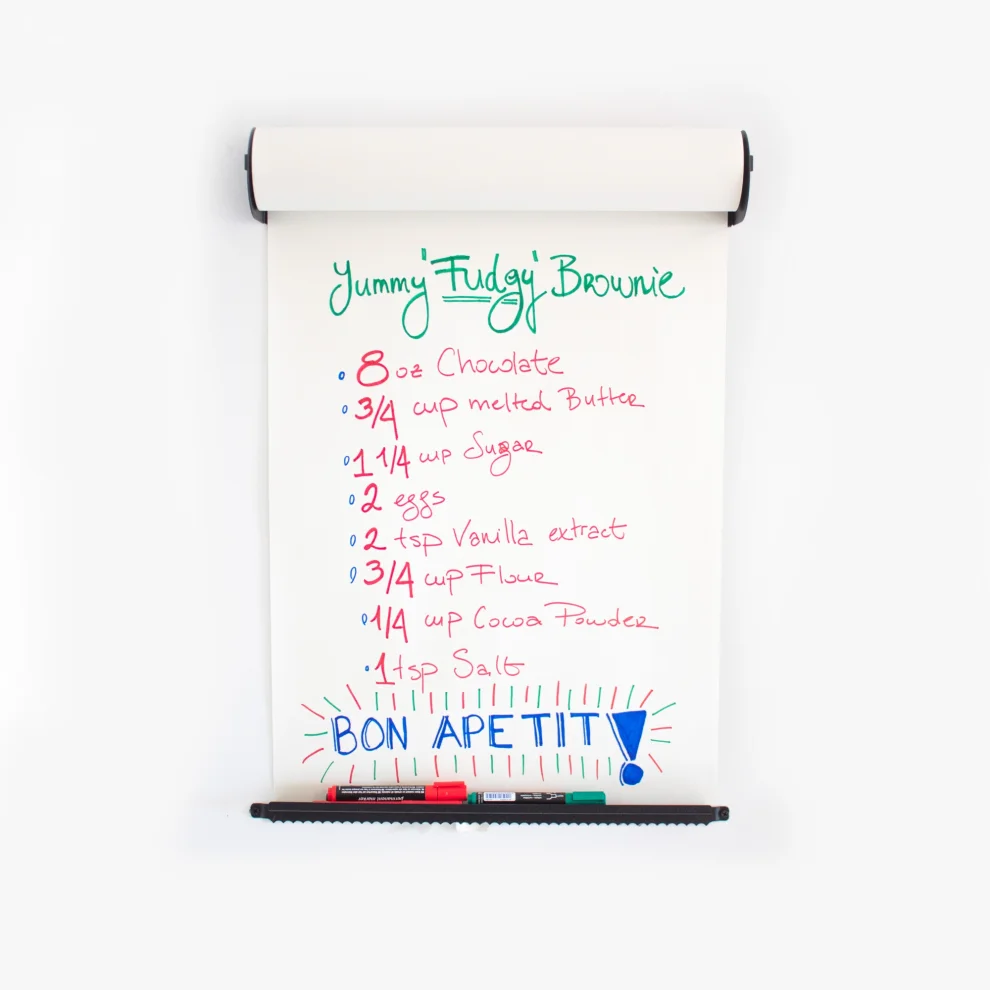 Yummy 'Fudgy' Brownie
8 oz Chocolate
3/4 cup melted Butter
1 1/4 cup Sugar
2 eggs
2 tsp Vanilla extract
3/4 cup Flour
1/4 cup Cocoa Powder
1 tsp Salt
BON APETIT!
permanent marker